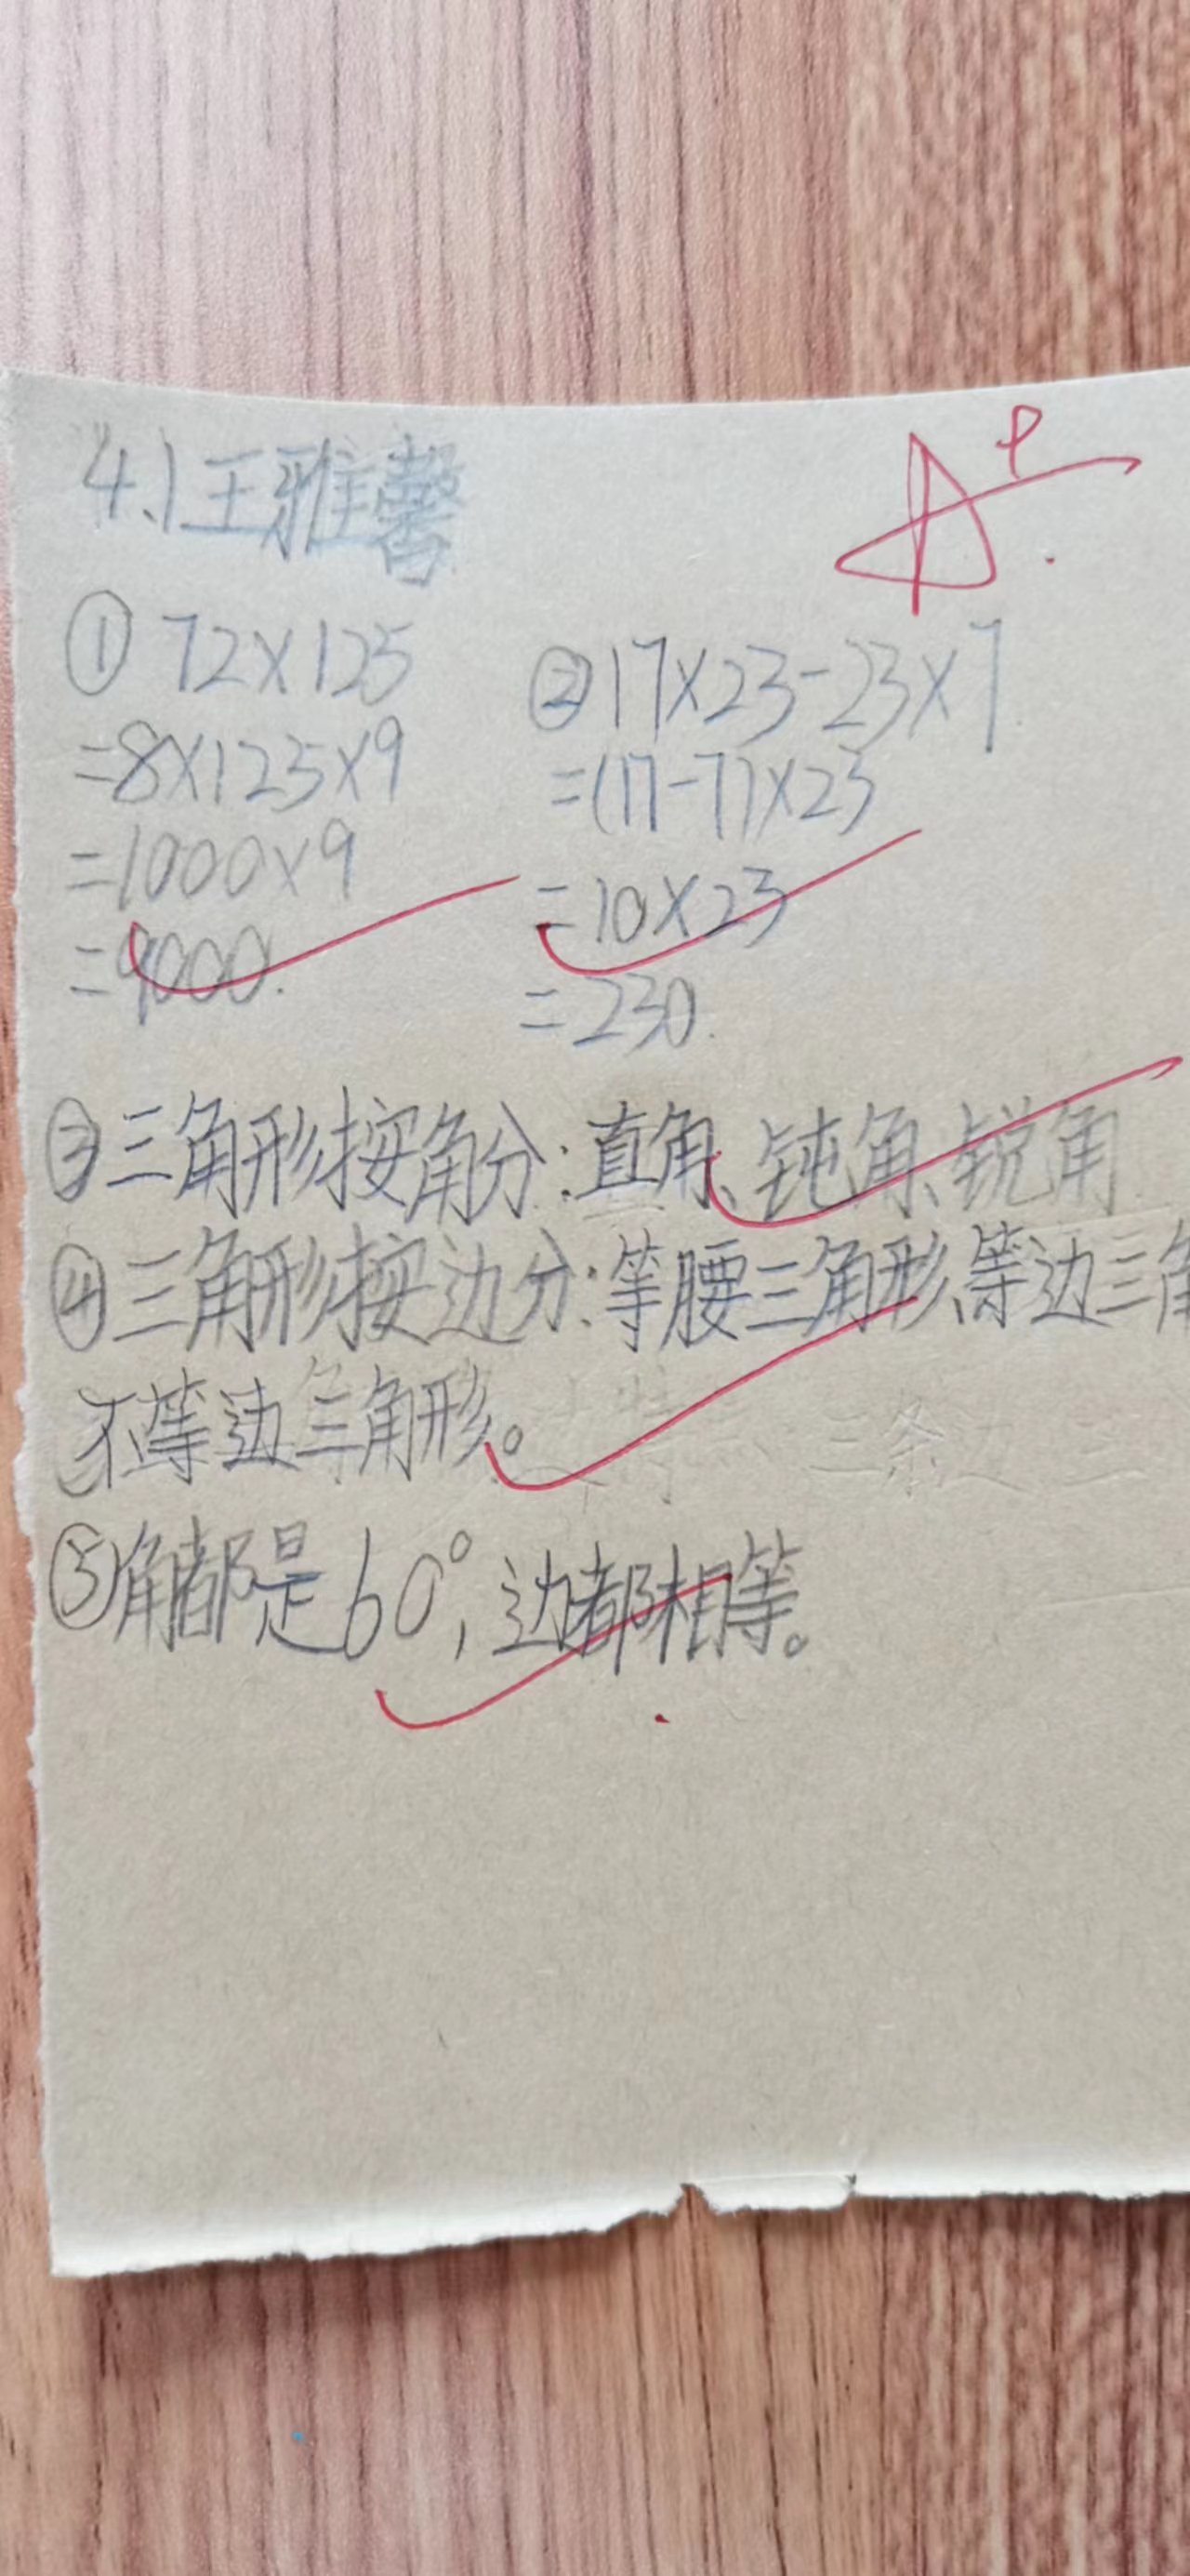 4.1王雅馨
A+
① 72×125
=8×125×9
=1000×9
=9000.
②17×23-23×7
=(17-7)×23
=10×23
=230.
③三角形按角分:直角、钝角、锐角
④三角形按边分:等腰三角形、等边三角
不等边三角形。
⑤角都是60°,边都相等。